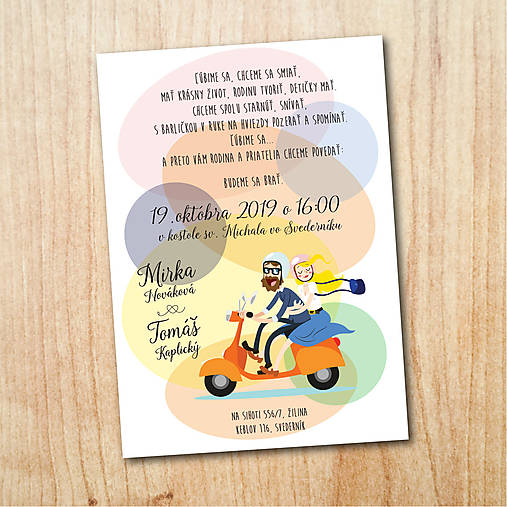 ĽÚBIME SA, CHCEME SA SMIAŤ,
MAŤ KRÁSNY ŽIVOT, RODINU TVORIŤ, DETIČKY MAŤ.
CHCEME SPOLU STARNÚŤ, SNÍVAŤ,
S BARLIČKOU V RUKE NA HVIEZDY POZERAŤ A SPOMÍNAŤ.
ĽÚBIME SA...
A PRETO VÁM RODINA A PRIATELIA CHCEME POVEDAŤ:
BUDEME SA BRAŤ.
19. októbra 2019 o 16:00
v kostole sv. Michala vo Svederníku
Mirka
Nováková
Tomáš
Kaplický
NA SIHOTI 556/7, ŽILINA
KEBLOV 116, SVEDERNÍK